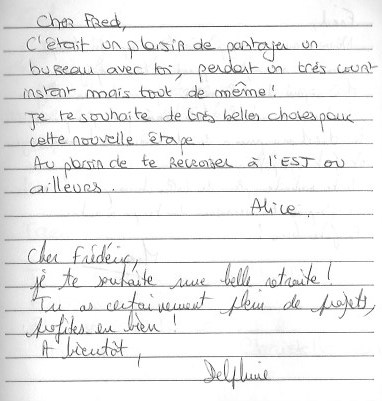 Cher Fred,
C'était un plaisir de partager un
bureau avec toi, pendant un très court
instant mais tout de même!
Je te souhaite de très belles choses pour
cette nouvelle étape.
Au plaisir de te recroiser à l'EST ou
ailleurs.
Alice.
Cher Frédéric,
je te souhaite une belle retraite!
Tu as certainement plein de projets,
profites en bien!
A bientôt,
Delphine